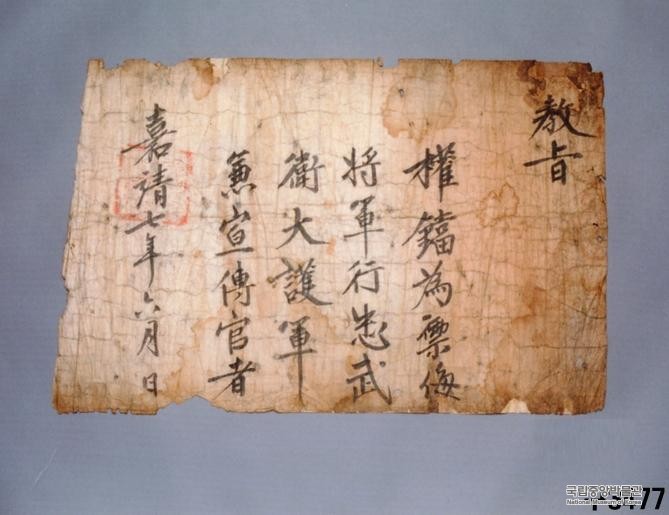 教旨
權為禦侮
將軍行忠武
衛大護軍
兼宣傳官者
嘉靖七年六月 日
국립중앙박물관
National Museum of Korea